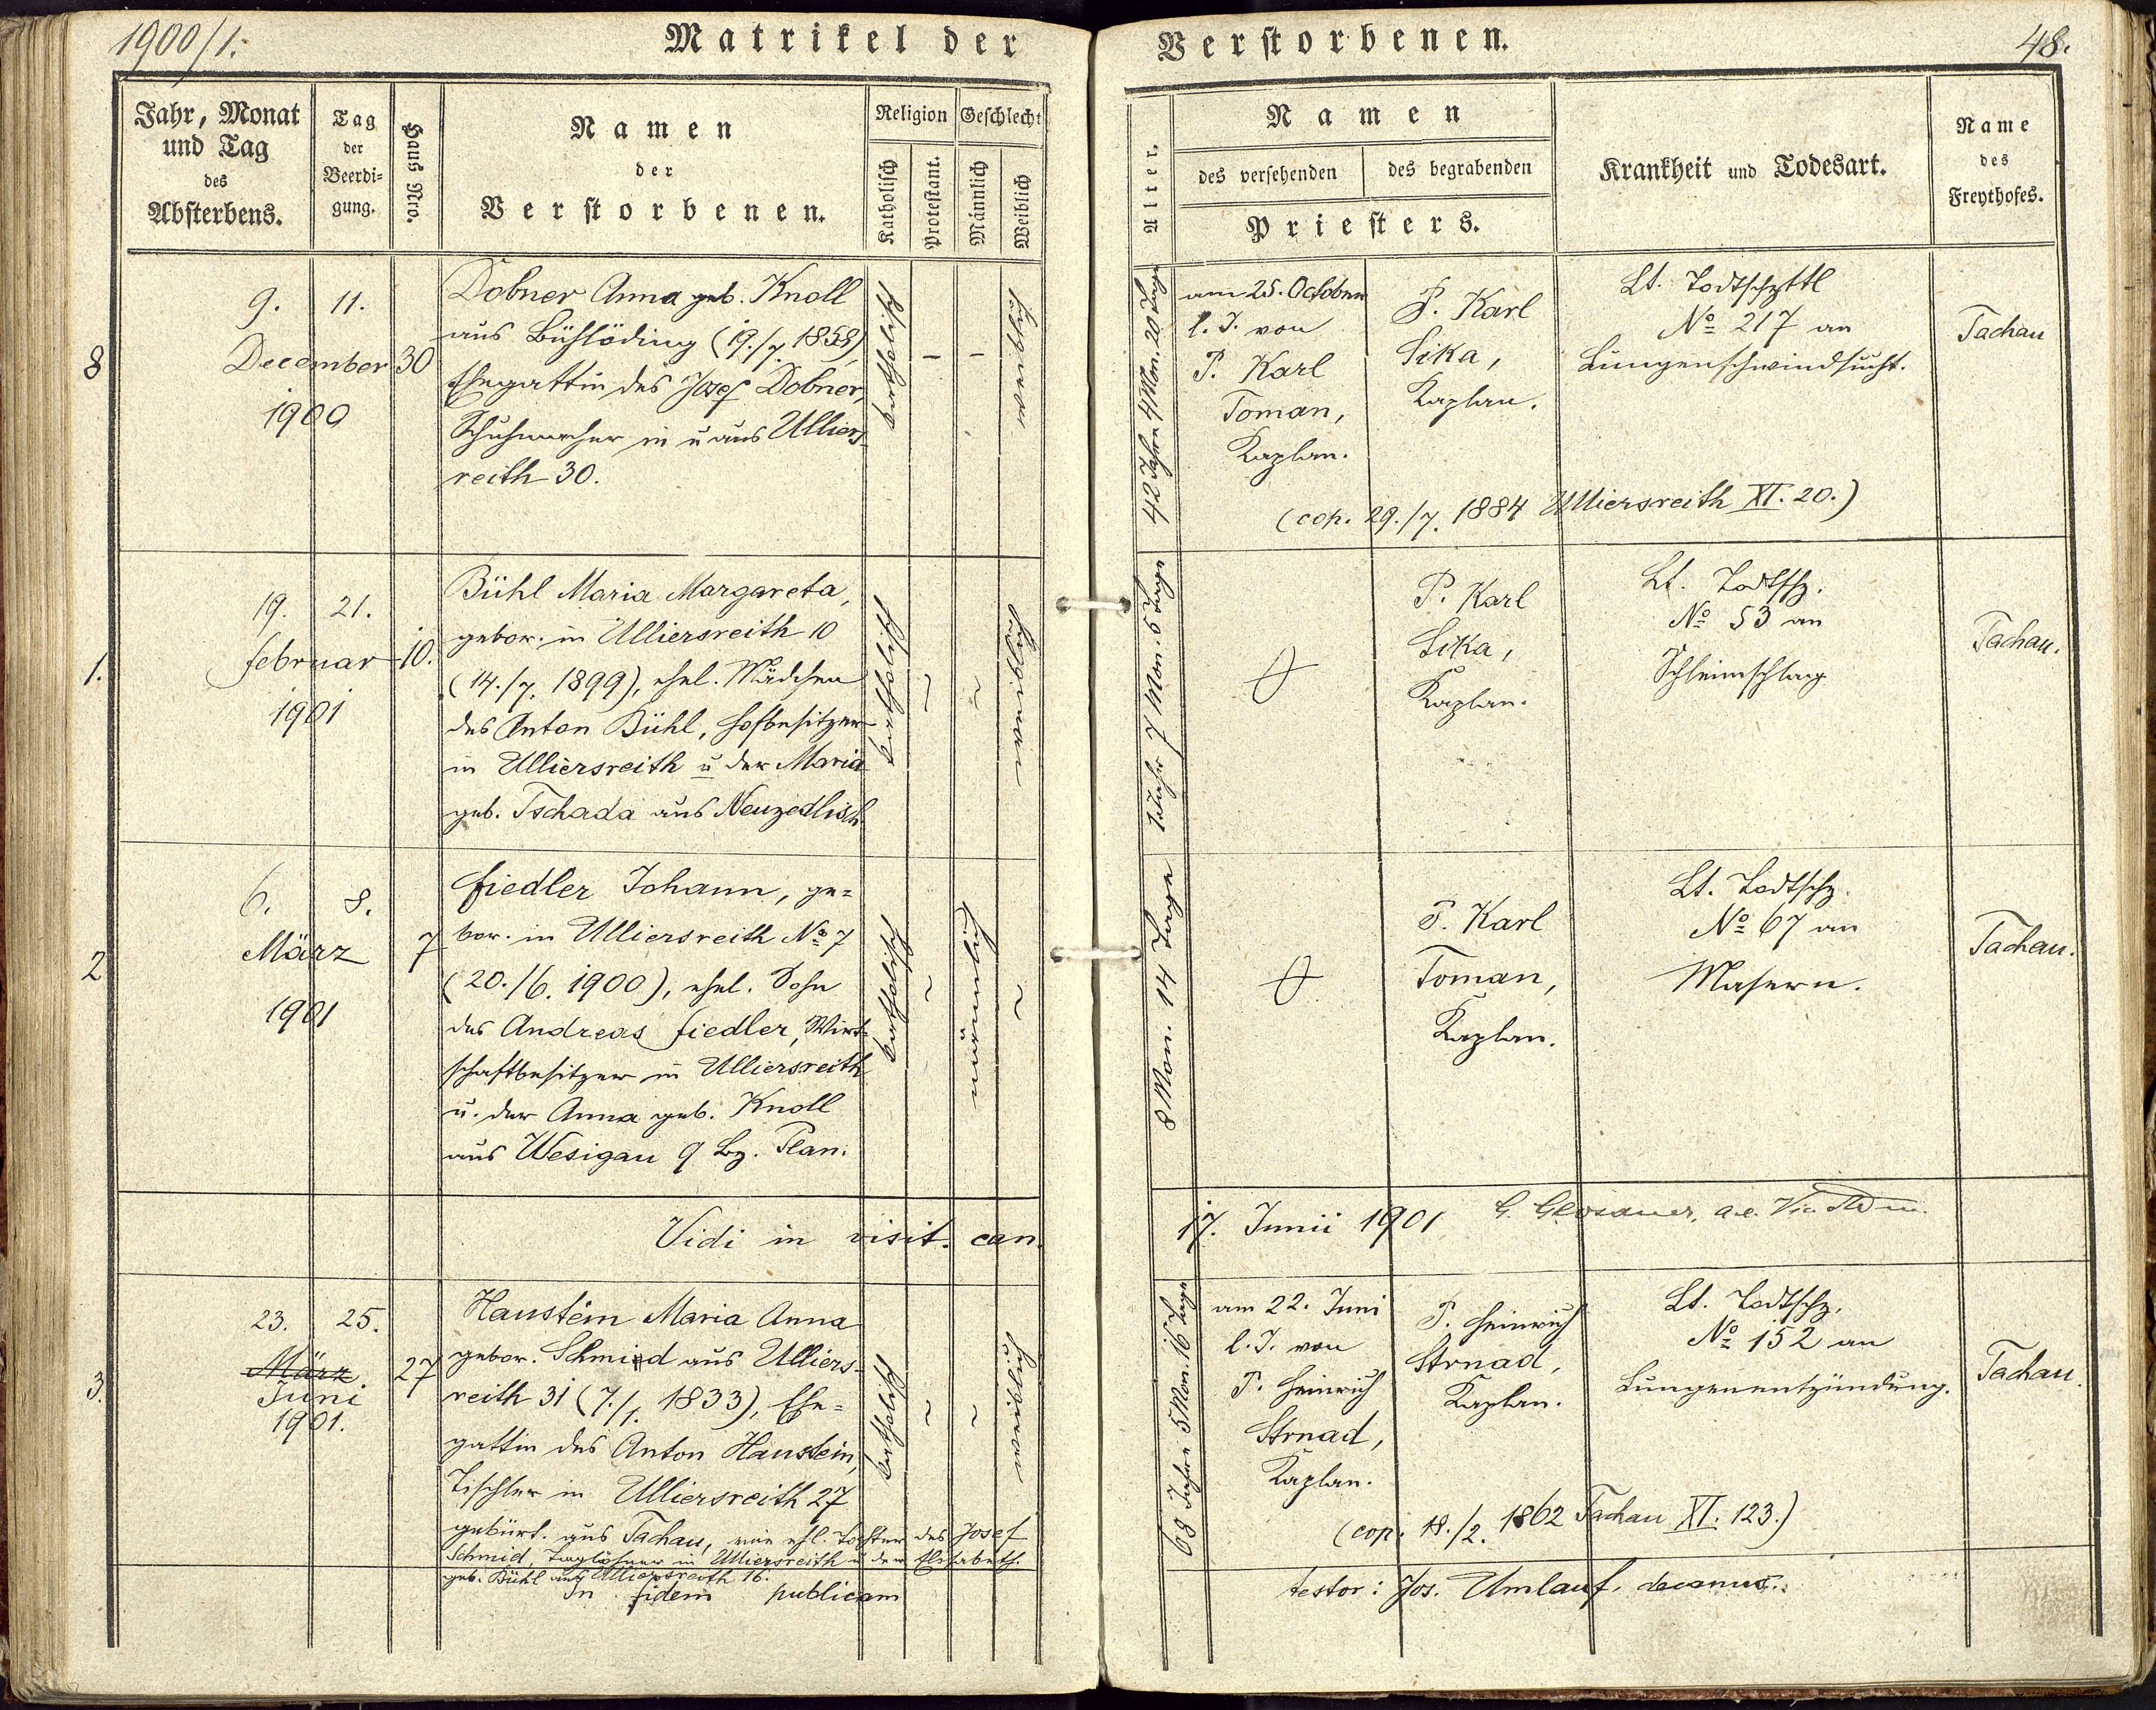 1900/1.
Matrikel der
Verstorbenen.
48.
Jahr, Monat
und Tag
des
Absterbens.
Tag
der
Beerdi-
gung.
Haus Nro.
Namen
der
Verstorbenen.
Religion
Katholisch
Protestant.
Geschlecht
Männlich
Weiblich
Alter.
Namen
des versehenden
des begrabenden
Priesters.
Krankheit und Todesart.
Name
des
Freythofes.
8
9.
11.
December
1900
30
Dobner Anna geb. Knoll
aus Bühlöding (19./7. 1858),
Ehegattin des Josef Dobner,
Schuhmacher in u aus Ulliers-
reith 30.
katholisch
–
–
weiblich
42 Jahre 4 Mon. 20 Tage
am 25. October
l. J. von
P. Karl
Toman,
Kaplan.
P. Karl
Sika,
Kaplan.
Lt. Todtschzttl
№ 217 an
Lungenschwindsucht.
Tachau
(cop. 29./7. 1884 Ulliersreith XI. 20.)
1.
19.
21.
Februar
1901
10.
Bühl Maria Margareta,
gebor. in Ulliersreith 10
(14./7. 1899), ehel. Mädchen
des Anton Bühl, Hofbesitzer
in Ulliersreith u der Maria
geb. Tschada aus Neuzedlisch.
katholisch
~
~
weiblich
1 Jahr 7 Mon. 5 Tage
P. Karl
Sika,
Kaplan.
Lt. Todtschz.
№ 53 an
Schleimschlag
Tachau.
2
6.
8.
März
1901
7
Fiedler Johann, ge=
bor. in Ulliersreith № 7
(20./6. 1900), ehel. Sohn
des Andreas Fiedler, Wirt-
schaftbesitzer in Ulliersreith
u. der Anna geb. Knoll
aus Wesigau 9 Bz. Plan.
katholisch
~
männlich
~
8 Mon. 14 Tage
P. Karl
Toman,
Kaplan.
Lt. Todtschz.
№ 67 an
Masern.
Tachau.
Vidi in visit. can.
17. Junii 1901
3.
23.
25.
März
Juni
1901.
27
Haustein Maria Anna
gebor. Schmied aus Ulliers-
reith 31 (7./1. 1833), Ehe=
gattin des Anton Haustein,
Tischler in Ulliersreith 27
gebürt. aus Tachau, eine ehl. Tochter des Josef
Schmid, Taglöhner in Ulliersreith u der Elisabeth.
geb. Bühl aus Ulliersreith 16.
katholisch
~
~
weiblich
68 Jahre 5 Mon. 16 Tage
am 22. Juni
l. J. von
P. Heinrich
Strnad,
Kaplan.
P. Heinrich
Strnad,
Kaplan.
Lt. Todtschz.
№ 152 an
Lungenentzündung.
Tachau.
(cop. 18./2. 1862 Tachau XI. 123.)
In fidem publicam
testor: Jos. Umlauf, decanus.